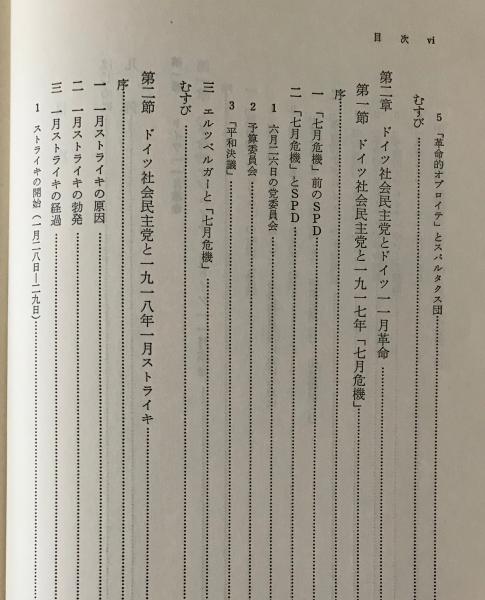 目次 vi
5 「革命的オプロイテ」とスパルタクス団
むすび
第二章 ドイツ社会民主党とドイツ一一月革命
第一節 ドイツ社会民主党と一九一七年「七月危機」
序
一 「七月危機」前のSPD
二 「七月危機」とSPD
1 六月二六日の党委員会
2 予算委員会
3 「平和決議」
三 エルツベルガーと「七月危機」
むすび
第二節 ドイツ社会民主党と一九一八年一月ストライキ
序
一 一月ストライキの原因
二 一月ストライキの勃発
三 一月ストライキの経過
1 ストライキの開始(一月二八日—二九日)